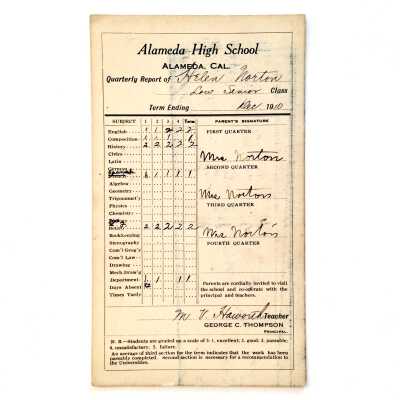 Alameda High School
ALAMEDA, CAL.
Quarterly Report of Helen Norton
Low Senior Class
Term Ending Dec 1910
SUBJECT 1 2 3 4 Term PARENT'S SIGNATURE
English 1 1 2 2 2 FIRST QUARTER
Composition 1 1 1 1
History 2 2 2 2 2
Civics Mrs Norton
Latin SECOND QUARTER
French 1 1 1 1
Algebra
Geometry Mrs Norton
Trigonomet'y THIRD QUARTER
Physics
Chemistry
2 2 2 2 2 Mrs Norton
Bookkeeping FOURTH QUARTER
Stenography
Com'l Geog'y
Com'l Law
Drawing
Mech Draw'g
Department 1 1 1 1
Days Absent
Times Tardy
Parents are cordially invited to visit
the school and co-operate with the
principal and teachers.
M. V. Haworth Teacher
GEORGE C. THOMPSON
PRINCIPAL
N. B.—Students are graded on a scale of 5: 1, excellent; 2, good; 3, passable;
4, unsatisfactory; 5, failure.
An average of third section for the term indicates that the work has been
passably completed; second section is necessary for a recommendation to
the Universities.